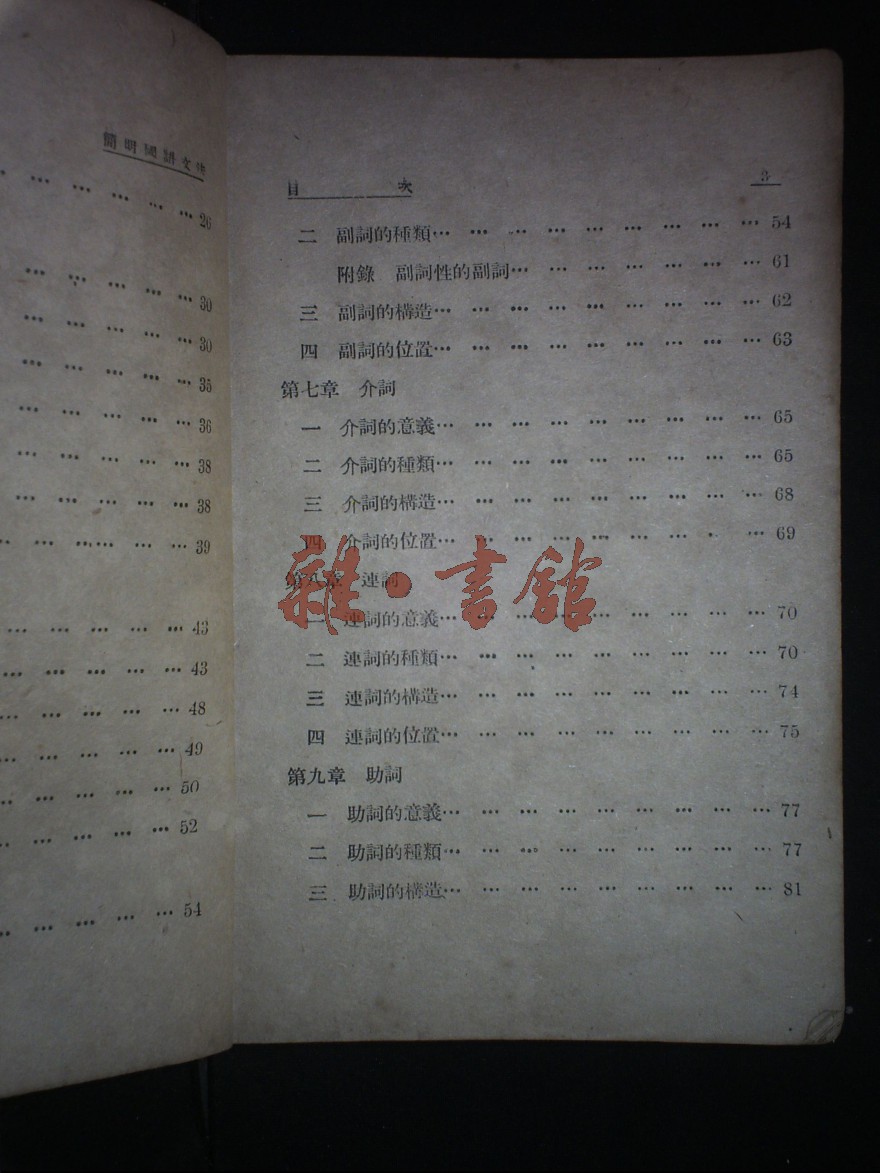 簡明國語文法
… … … … … 26
… … … … … 30
… … … … … 30
… … … … … 35
… … … … … 36
… … … … … 38
… … … … … 38
… … … … … 39
… … … … … 43
… … … … … 43
… … … … … 48
… … … … … 49
… … … … … 50
… … … … … 52
… … … … … 54
目 次 3
二 副詞的種類… … … … … … … … … 54
附錄 副詞性的副詞… … … … … … … 61
三 副詞的構造… … … … … … … … … 62
四 副詞的位置… … … … … … … … … 63
第七章 介詞
一 介詞的意義… … … … … … … … … 65
二 介詞的種類… … … … … … … … … 65
三 介詞的構造… … … … … … … … … 68
四 介詞的位置… … … … … … … … … 69
第八章 連詞
一 連詞的意義… … … … … … … … … 70
二 連詞的種類… … … … … … … … … 70
三 連詞的構造… … … … … … … … … 74
四 連詞的位置… … … … … … … … … 75
第九章 助詞
一 助詞的意義… … … … … … … … … 77
二 助詞的種類… … … … … … … … … 77
三 助詞的構造… … … … … … … … … 81
雜·書館